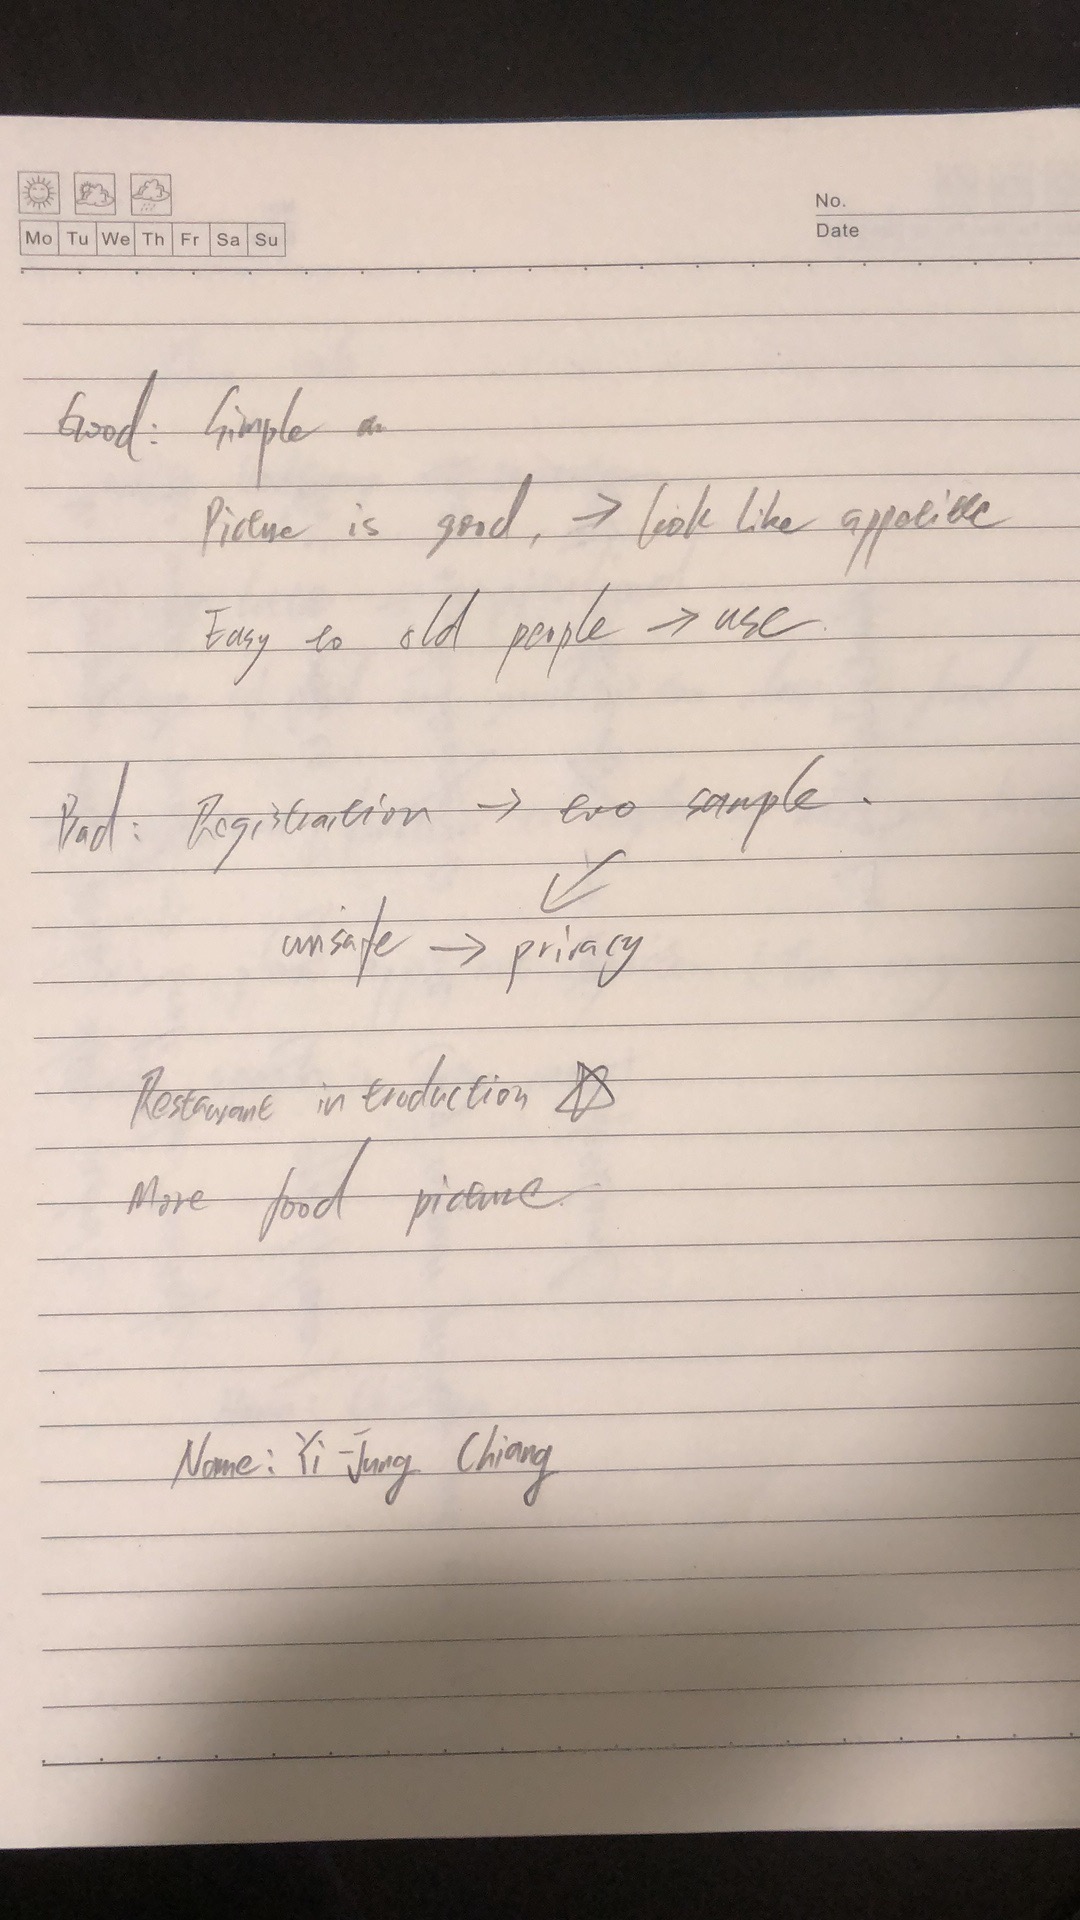 No.
Date
Mo Tu We Th Fr Sa Su
Good: Simple
Picture is good, → look like appetite
Easy to old people → use.
Bad: Registration → too sample.
unsafe → privacy
Restaurant introduction ☆
More food picture.
Name: Yi-Jung Chiang